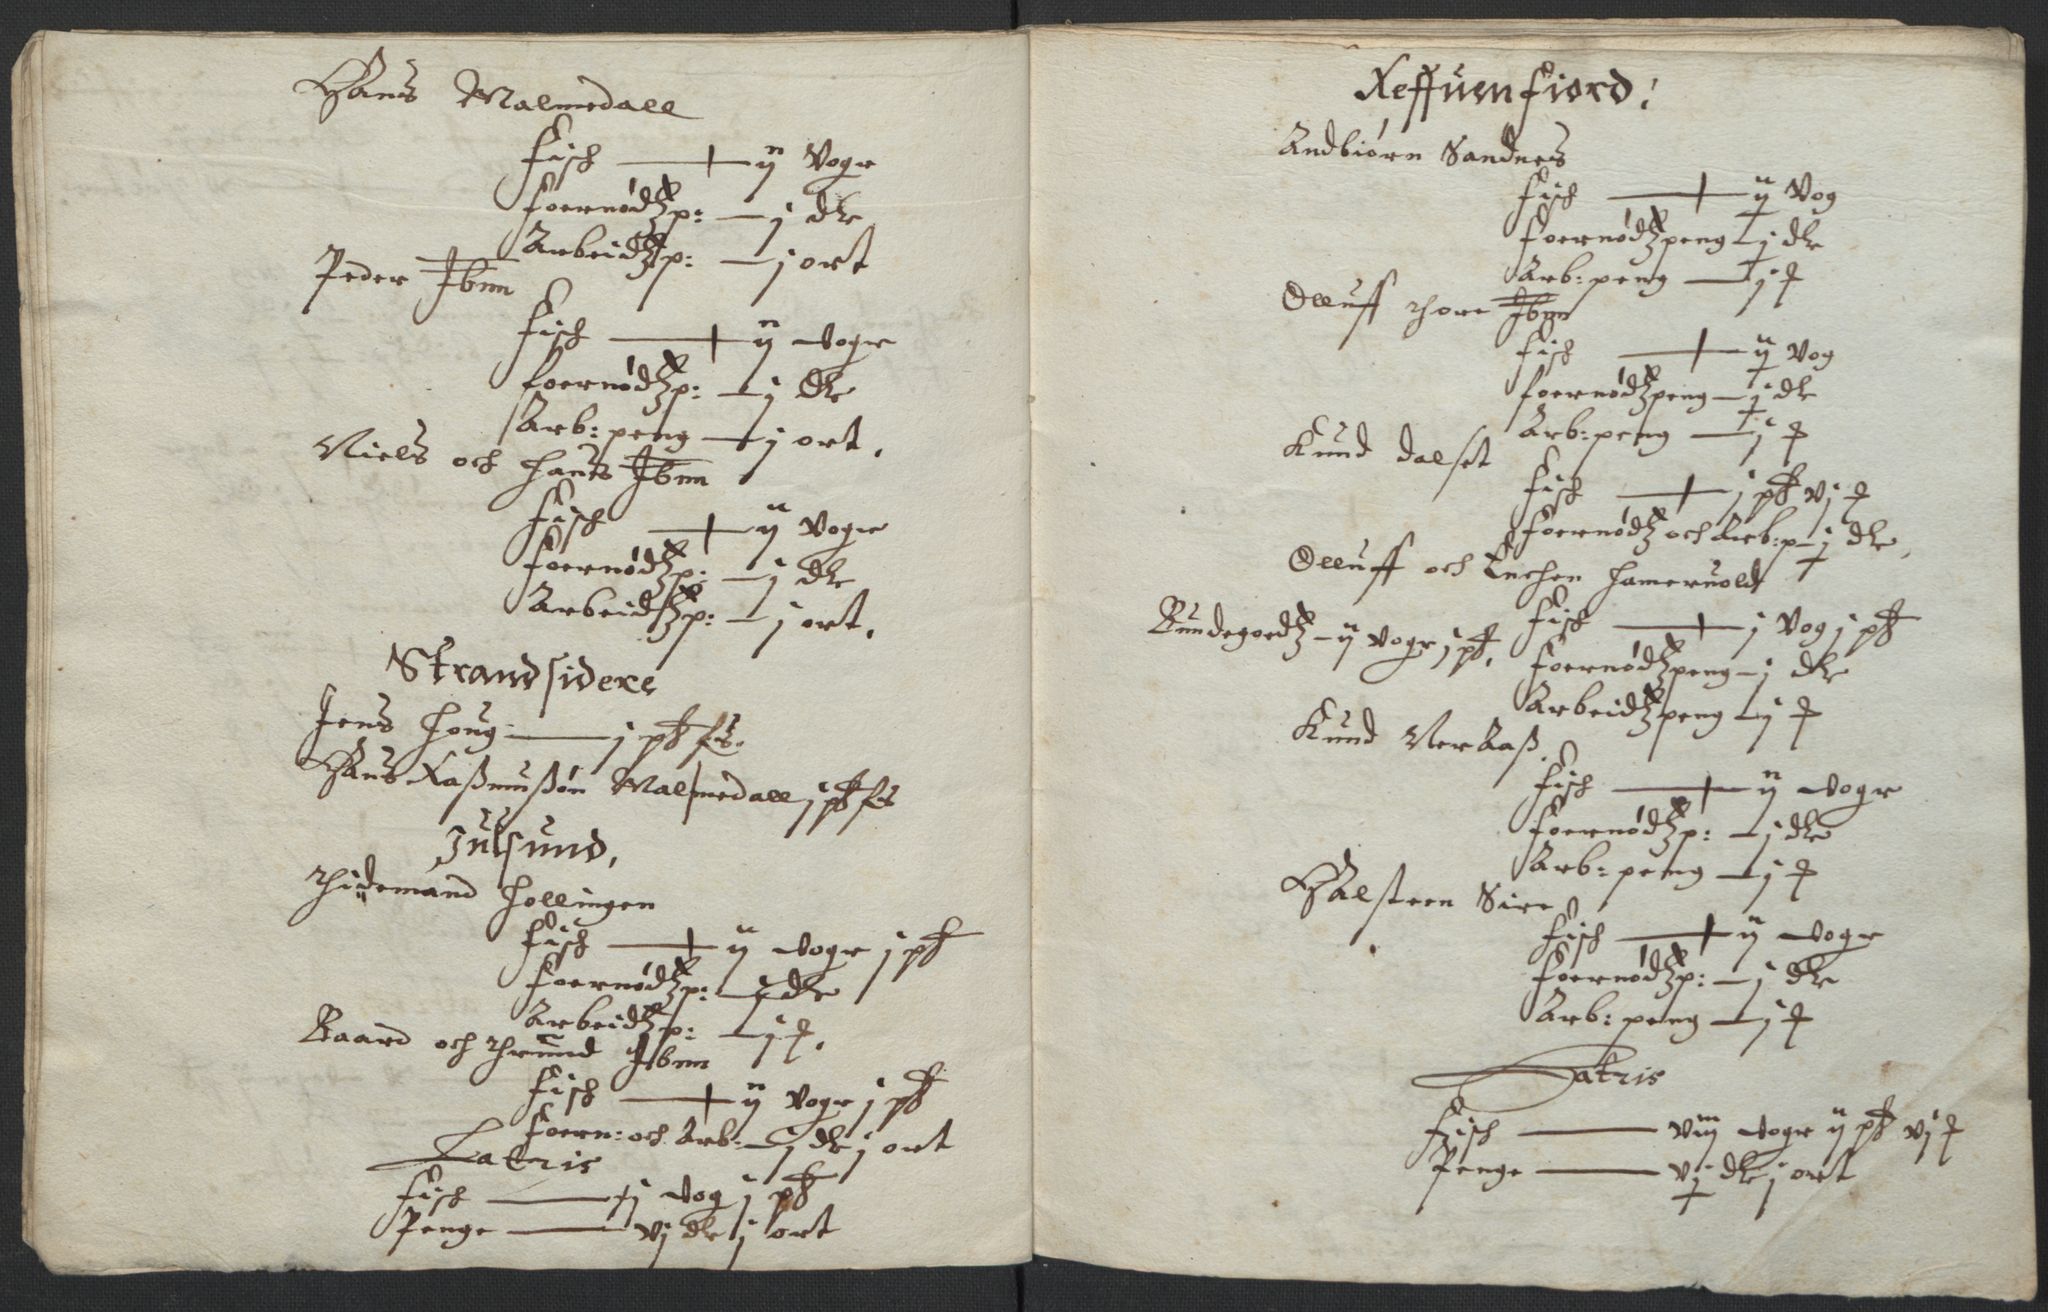 Hans Malmedall
Fisch — ij Vogr
foernødtzp: — j dlr
Arbeidtzp: — j ort
Peder Ibm
Fisch — ij Vogr
foernødtzp: — j dlr
Arb: peng — j ort.
Niels och Hans Ibm
Fisch — ij Vogr
foernødtzp: — j dlr
Arbeidtzp: — j ort.
Strandsidere
Jens Houg — j pf fs.
Hans Raßmußøn Malmedall j pf fs
Julsund,
Thidemand Hollingen
Fisch — ij Vogr j pf
foernødtzp: — j dlr
Arbeidtzp: — j
Baard och Thrund Ibm
Fisch — ij Vogr j pf
foern: och Arb: — j dlr j ort
Latris
Fisch — xj Vog j pf
Penge — vj dlr j ort
Reffuenfiord:
Andbiørn Sandnes
Fisch — ij Vog
foernødtzpeng — j dlr
Arb: peng — j
Olluff Thore Ibm
Fisch — ij Vog
foernødtzpeng — j dlr
Arb: peng — j
Knud Dalset
Fisch — j pf vj
foernødtz och Arb: p — j dlr.
Olluff och Enchen Hameruold
Fisch — j Vog j pf
Bundegodtz — ij Vogr j pf.
foernødtzpeng — j dlr
Arbeidtzpeng — j
Knud Veraaß.
Fisch — ij Vogr
foernødtzp: — j dlr
Arb: peng — j
Halsteen Sire
Fisch — ij Vogr
foernødtzp: — j dlr
Arb: peng — j
Latris
Fisch — viij Vogr ij pf vj
Penge — vj dlr j ort